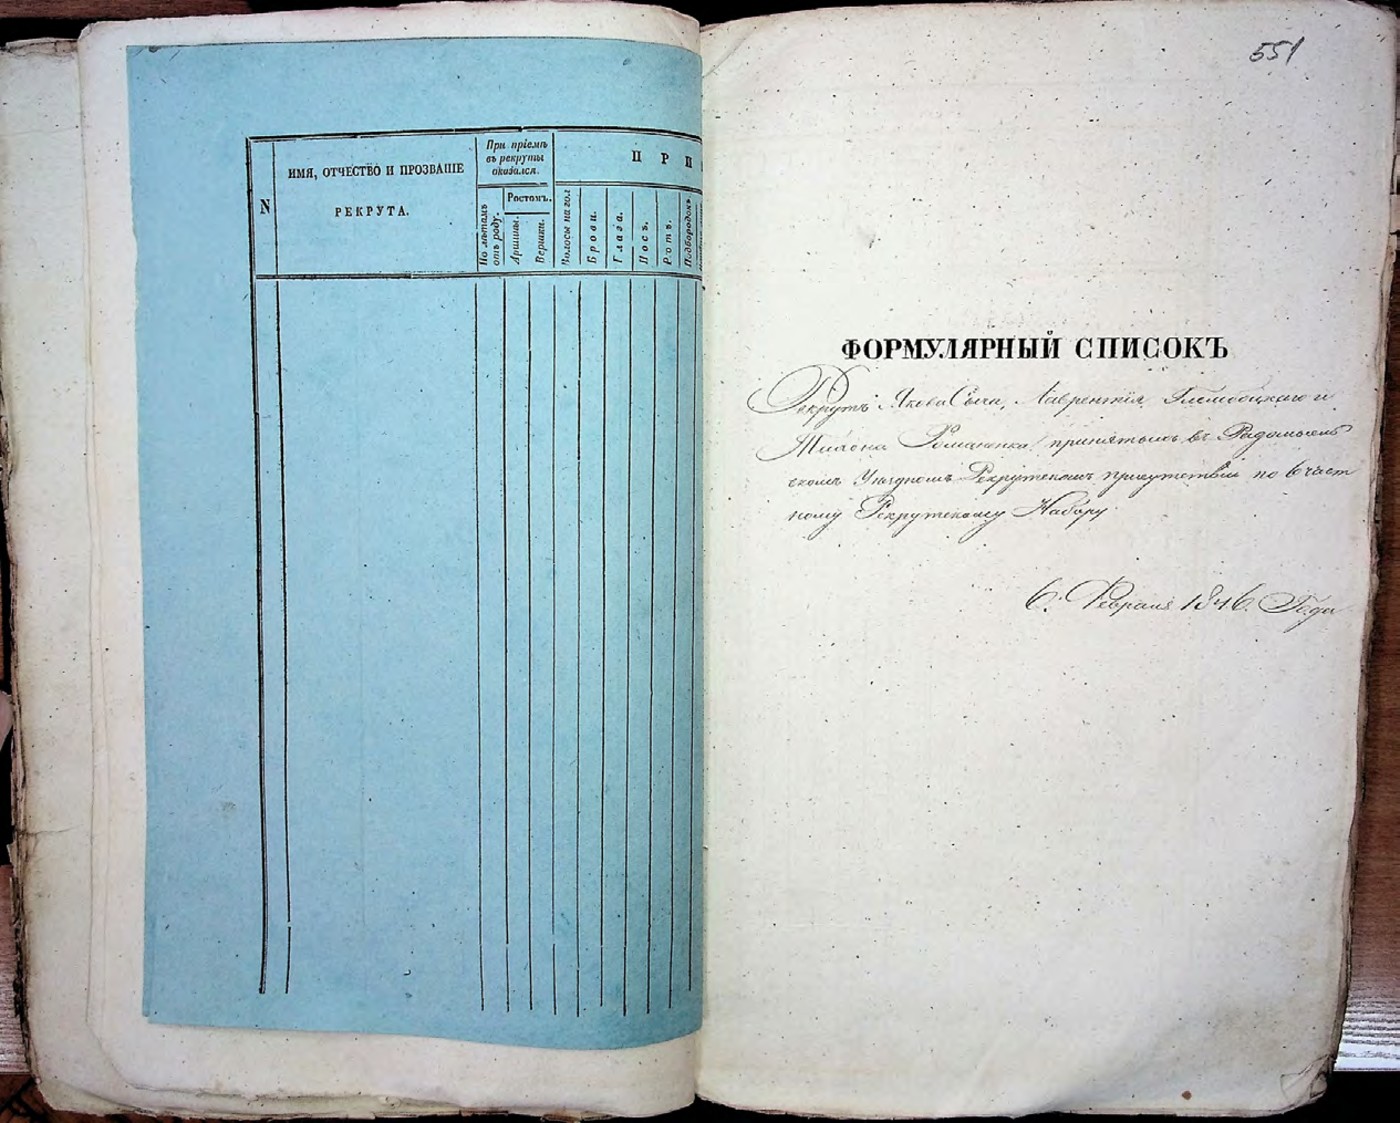 N
ИМЯ, ОТЧЕСТВО И ПРОЗВАНІЕ
РЕКРУТА.
При пріемѣ
въ рекруты
оказался.
По лѣтамъ
отъ роду.
Ростомъ.
Аршины.
Вершки.
ПРИ
Волосы на гол
Брови.
Глаза.
Носъ.
Ротъ.
Подбородокъ
551
ФОРМУЛЯРНЫЙ СПИСОКЪ
Рекрутъ Якова Сыча, Лаврентія Глембоцкаго и
Романенка принятымъ въ Радомысль
скомъ Уѣздномъ Рекрутскомъ присутствіи по 6 част
ному Рекрутскому Набору
6. Февраля 1846. Года